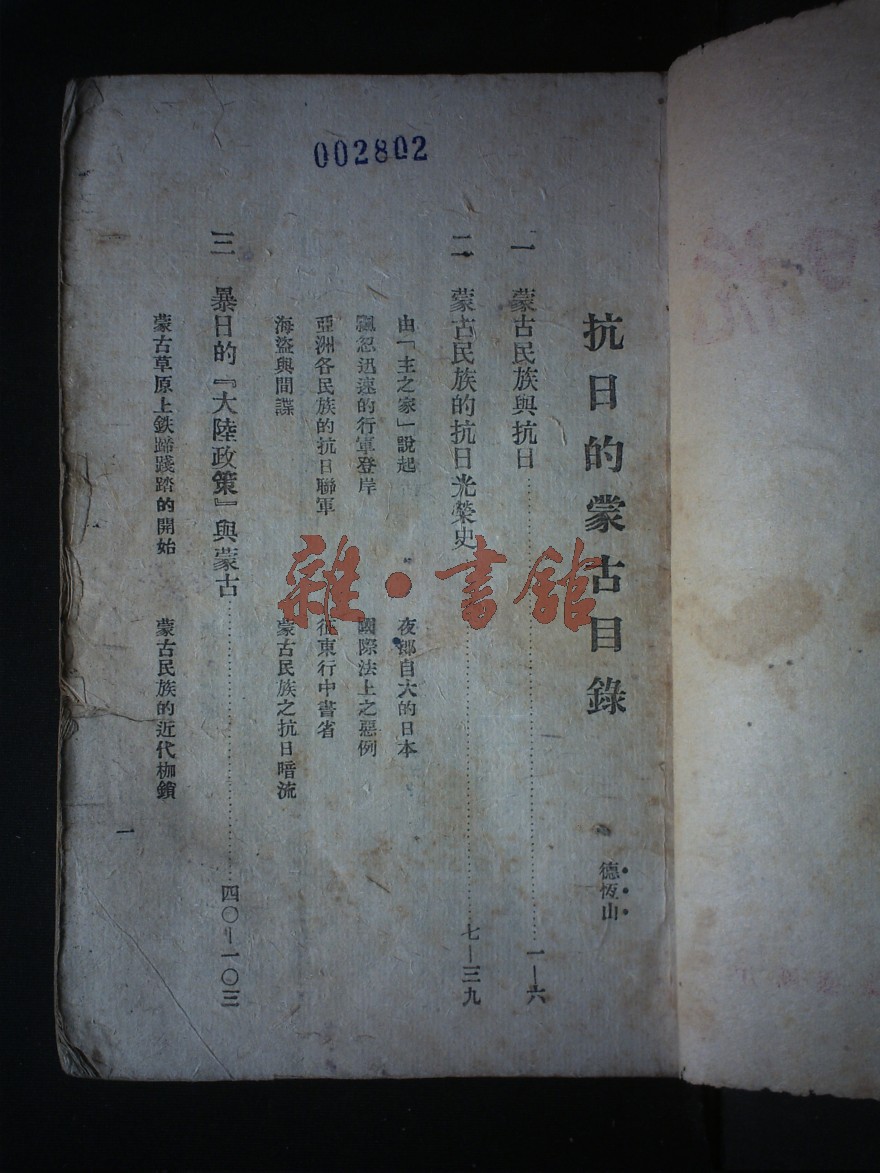 002802
抗日的蒙古目錄
德恆山
一 蒙古民族與抗日…………一—六
二 蒙古民族的抗日光榮史…………七—三九
由「主之家」說起 夜郎自大的日本
飄忽迅速的行軍登岸 國際法上之惡例
亞洲各民族的抗日聯軍 征東行中書省
海盜與間諜 蒙古民族之抗日暗流
三 暴日的『大陸政策』與蒙古…………四〇—一〇三
蒙古草原上鉄蹄踐踏的開始 蒙古民族的近代枷鎖
一
雜·書館